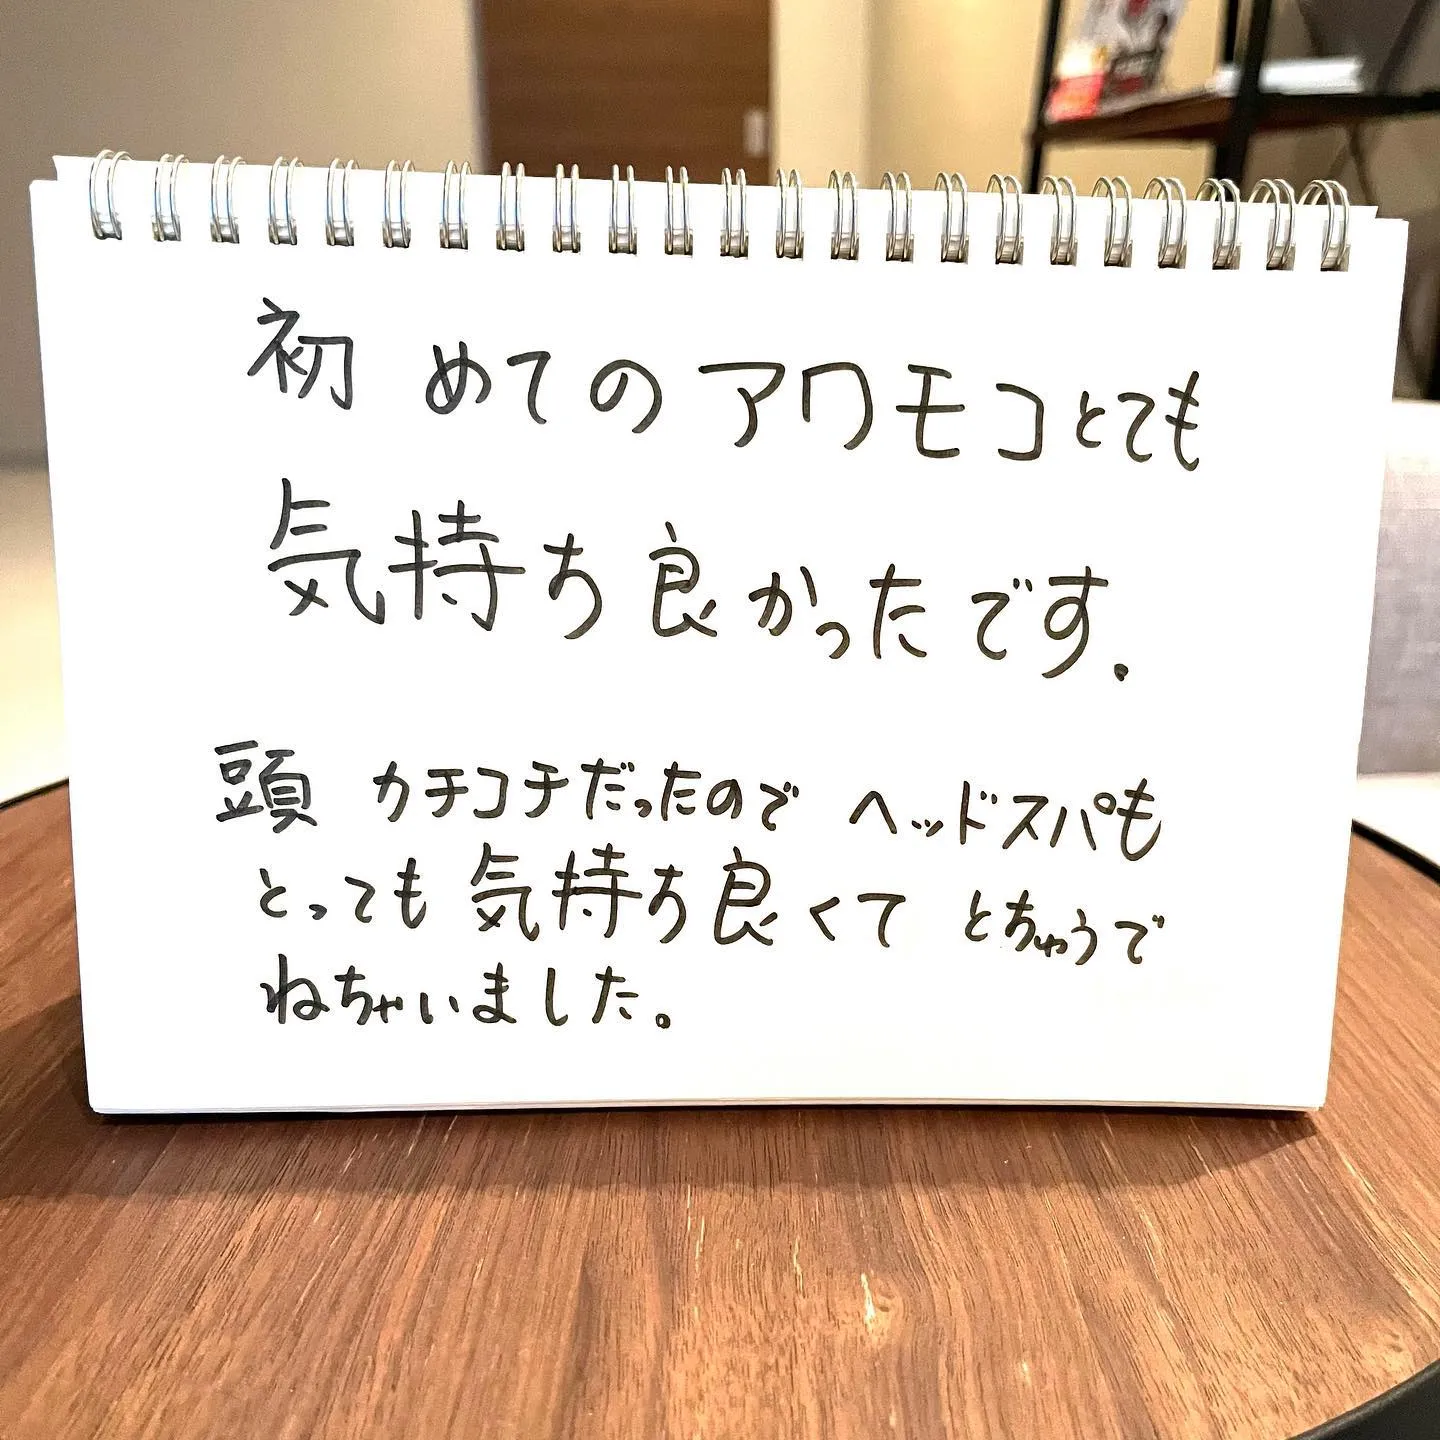 初めてのアワモコとても
気持ち良かったです.
頭 カチコチだったので ヘッドスパも
とっても気持ち良くて とちゅうで
ねちゃいました。